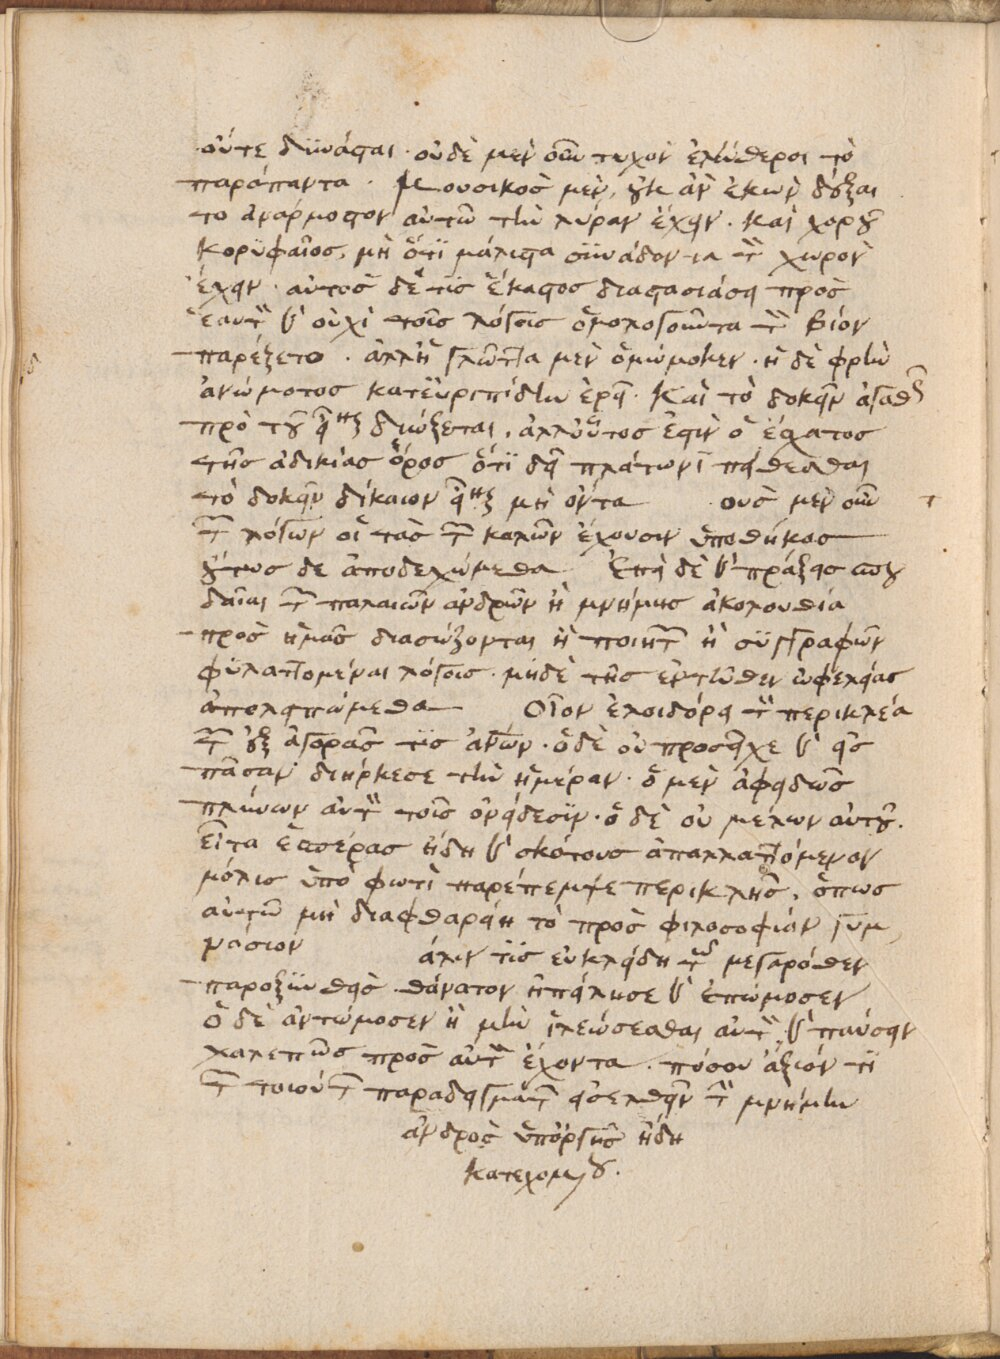 οὔτε δυνάσται· οὐδὲ μὲν οὖν τυχὸν ἐλεύθεροι τὸ
παράπαντα· Μουσικὸς μὲν, οὐκ ἂν ἑκὼν δόξαι
το ἀνάρμοστον αὐτῶ τὴν λύραν ἔχειν. Καὶ χοροῦ
κορυφαῖος, μὴ ὅτι μάλιστα συνάδοντα τὸν χωρὸν
ἔχειν· αὐτὸς δέ τις ἕκαστος διαστασιάσει πρὸς
ἑαυτὸν καὶ οὐχὶ τοῖς λόγοις ὁμολογοῦντα τὸν βίον
παρέξετο· ἀλλ' ἡ γλῶττα μὲν ὀμώμοκεν· ἡ δὲ φρὴν
ἀνώμοτος κατ' εὐριπίδην ἐρεῖ· Καὶ τὸ δοκεῖν ἀγαθὸς
πρὸ τοῦ εἶναι διώξεται, ἀλλ' οὗτος ἐστὶν ὁ ἔσχατος
τῆς ἀδικίας ὅρος ὅτι δεῖ πλάτωνι πείθεσθαι
τὸ δοκεῖν δίκαιον εἶναι μὴ ὄντα ους μὲν οὖν τ
τῶν λόγων οἳ τὰς τῶν καλῶν ἔχουσιν ὑποθήκας
οὕτως δε ἀποδεχώμεθα Ἐπεὶ δὲ καὶ πράξεις σπου
δαῖαι τῶν παλαιῶν ἀνδρῶν ἢ μνήμης ἀκολουθία
πρὸς ἡμᾶς διασώζονται ἢ ποιητῶν ἢ συγγραφῶν
φυλαττομέναι λόγοις· μηδὲ τῆς ἐντεῦθεν ὠφελείας
ἀπολειπώμεθα Οἷον ἐλοιδόρει τὸν περικλέα
τῶν ἐξ ἀγορᾶς τις ἀνθρώπων· ὁ δὲ οὐ προσεῖχε καὶ εἰς
πᾶσαν διήρκεσε τὴν ἡμέραν· ὁ μὲν ἀφειδῶς
πλύνων αὐτὸν τοῖς ὀνείδεσιν· ὁ δὲ οὐ μέλων αὐτοῦ.
Εἶτα ἑσπέρας ἤδη καὶ σκότους ἀπαλλαττόμενον
μόλις ὑπὸ φωτὶ παρέπεμψε περικλῆς, ὅπως
αὐτῶ μὴ διαφθαρείη τὸ πρὸς φιλοσοφίαν γυμ
νάσιον άλιν τὶς εὐκλείδη τῶ μεγαρόθεν
παροξυνθεὶς θάνατον ἠπείλησε καὶ ἐπώμοσεν
ὁ δὲ ἀντώμοσεν ἦ μὴν ἱλεώσεσθαι αὐτὸν καὶ παύσειν
χαλεπῶς πρὸς αὐτὸν ἔχοντα. πόσου ἄξιόν τι
τῶν τοιούτων παραδειγμάτων εἰσελθεῖν τὴν μνήμην
ἀνδρὸς ὑπ' ὀργῆς ἤδη
κατεχομένου.